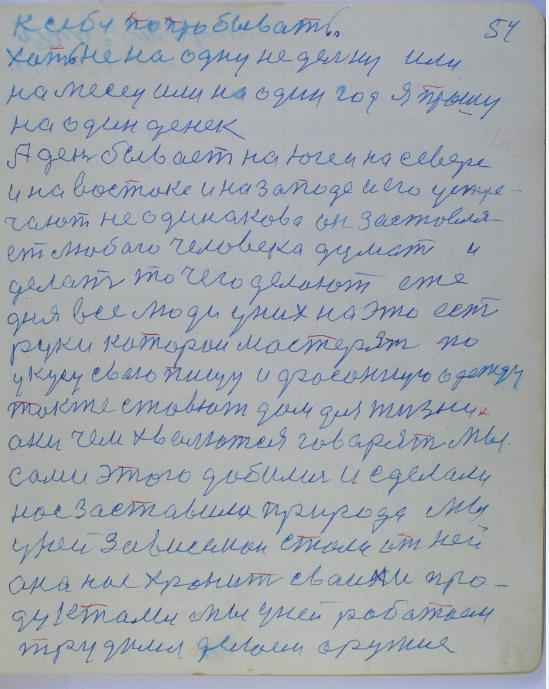 к себе попробывать. 54
хотьне на одну неделку или
на месец или на один год я прошу
на один денек
А ден бывает на югеи на севере
и на востоке и на западе и его устре-
чают не одинакова он застовля-
ет любого человека думат и
делать то чего делоют еже
дня все люди уних на это ест
руки которои мастерят по
укусу сваю пищу и фасонную одежду
также стовют дом для жизни
они чем хволются говарят Мы
сами этого добимся и сделали
нас заставила природа Мы
уней зависемои стали от ней
она нас хронит сваими про-
дуктами мы уней работаем
трудимся делаем оружие